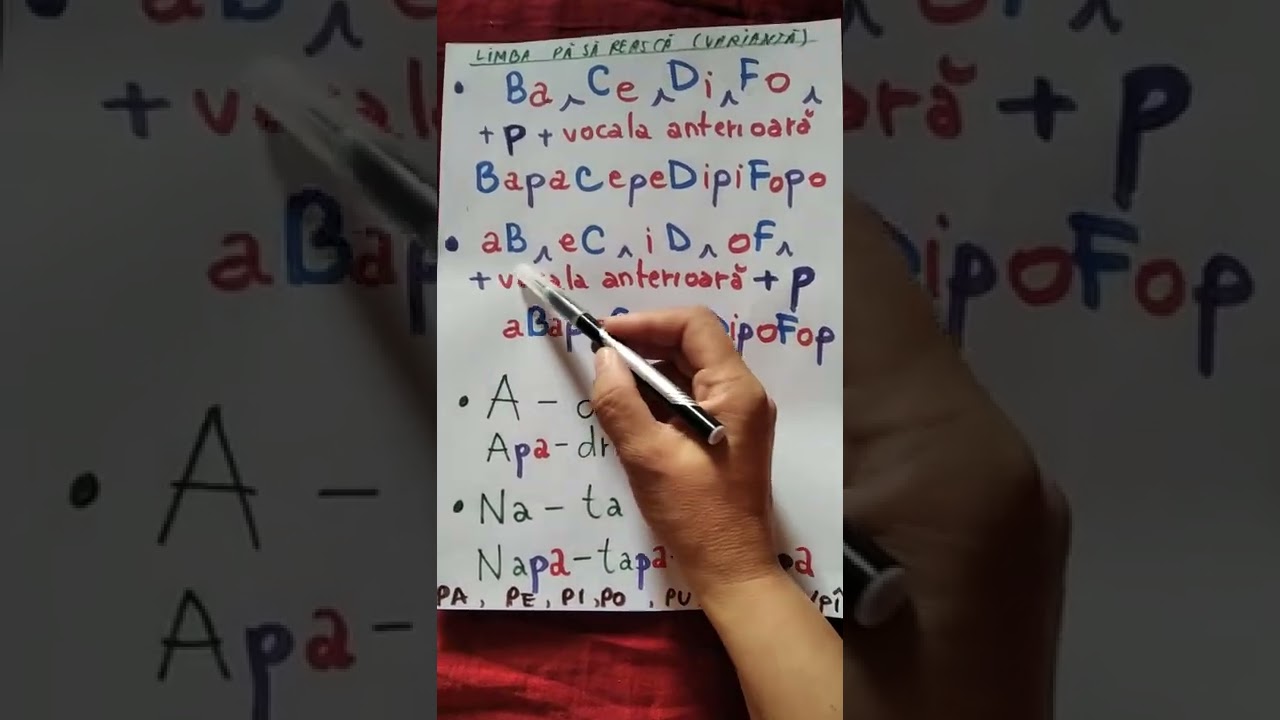 LIMBA PĂSĂREASCĂ (VARIANTĂ)
• Ba ^ Ce ^ Di ^ Fo ^
+ p + vocala anterioară
BapaCepeDipiFopo
• aB ^ eC ^ iD ^ oF ^
+ vocala anterioară + p
aBap ipoFop
• A –
Apa –
• Na – ta
Napa – tapa a
PA, PE, PI, PO, PU pî